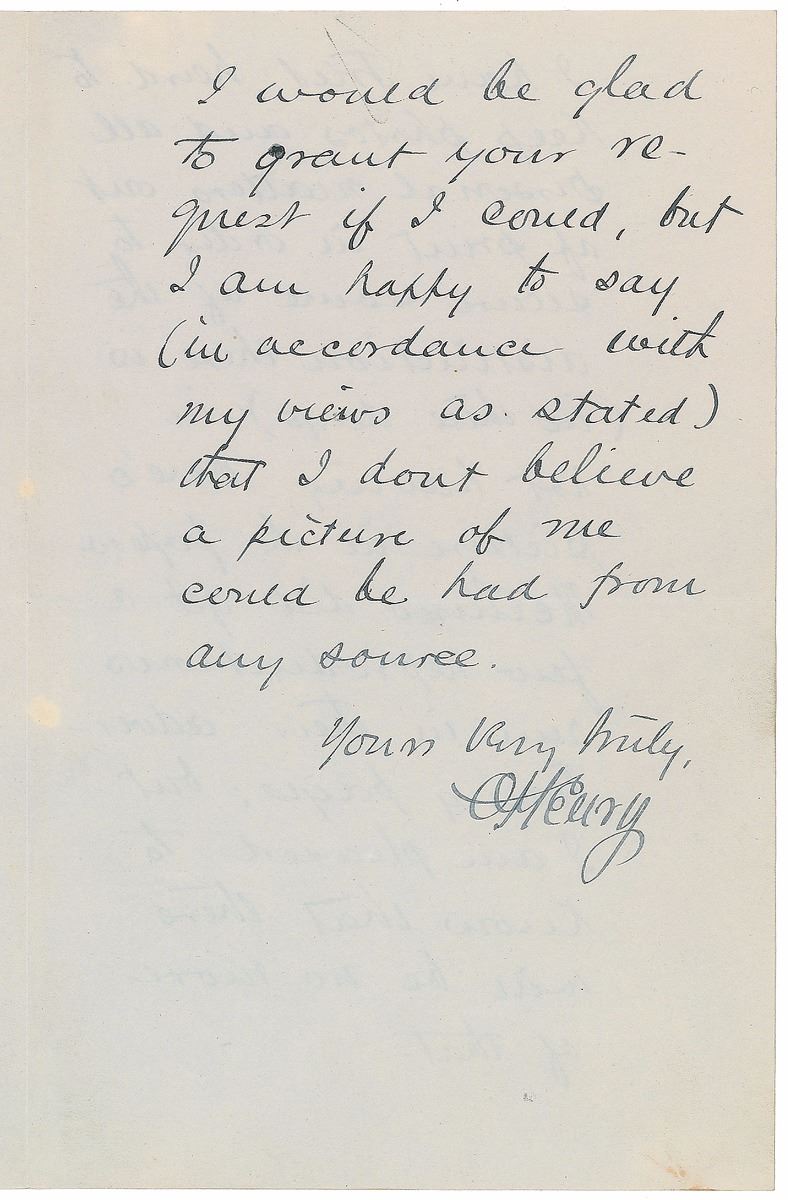 I would be glad
to grant your re-
quest if I could, but
I am happy to say
(in accordance with
my views as stated)
that I dont believe
a picture of me
could be had from
any source.
Yours Very Truly,
O Henry